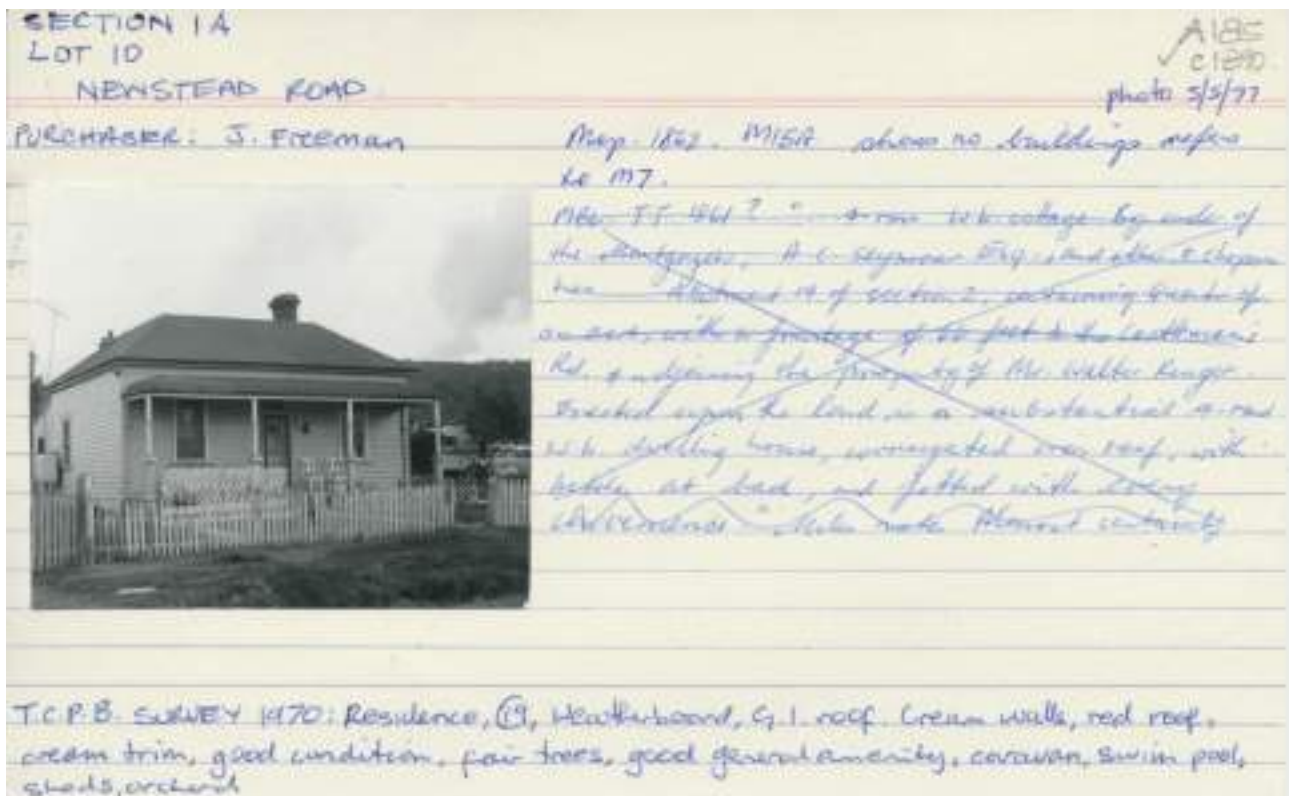 SECTION 1A
LOT 10
NEWSTEAD ROAD
A185
C1280
photo 5/5/77
PURCHASER: J. FREEMAN
Map. 1862. M15A shows no buildings refers
to M7.
4-room W.b. cottage by order of
the Mortgagee, A.C. Seymour Esq.
Allotment 19 of section 2, containing quarter of
an acre, with a frontage of 50 feet to the
Rd. adjoining the property of Mr. Walter
Erected upon the land is a substantial 4-room
W.b. dwelling house, corrugated iron roof, with
at back, and fitted with every
convenience" note Almost certainly
T.C.P.B. SURVEY 1970: Residence, (19, Weatherboard, G.I. roof. Cream walls, red roof,
cream trim, good condition, fair trees, good general amenity, caravan, swim pool,
sheds, orchard